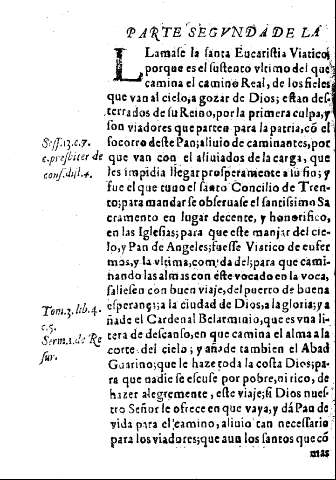 PARTE SEGVNDA DE LA
LLamase la santa Eucaristia Viatico,
porque es el sustento vltimo del que
camina el camino Real, de los fieles
que van al cielo, a gozar de Dios; estan des-
terrados de su Reino, por la primera culpa, y
son viadores que parten para la patria, cõ el
socorro deste Pan; aliuio de caminantes, por
que van con el aliuiados de la carga, que
les impidia llegar prosperamente a su fin; y
fue el que tuuo el santo Concilio de Tren-
to; para mandar se obseruase el santissimo Sa
cramento en lugar decente, y honorifico,
en las Iglesias; para que este manjar del cie-
lo, y Pan de Angeles; fuesse Viatico de enfer
mos, y la vltima, comida del; para que cami-
nando las almas con este vocado en la voca,
saliesen con buen viaje, del puerto de buena
esperança; a la ciudad de Dios, a la gloria; y a
ñade el Cardenal Belarminio, que es vna li-
tera de descanso, en que camina el alma a la
corte del cielo; y añade tambien el Abad
Guarino; que le haze toda la costa Dios; pa-
ra que nadie se escuse por pobre, ni rico, de
hazer alegremente, este viaje; si Dios nues-
tro Señor le ofrece en que vaya, y dâ Pan de
vida para el camino, aliuio tan necessario
para los viadores; que aun los santos que cõ
mas
Sess. 13. c. 7.
c. presbiter de
cons. dist. 4.
Tom. 3. lib. 4.
c. 5.
Serm. 1. de Re
sur.